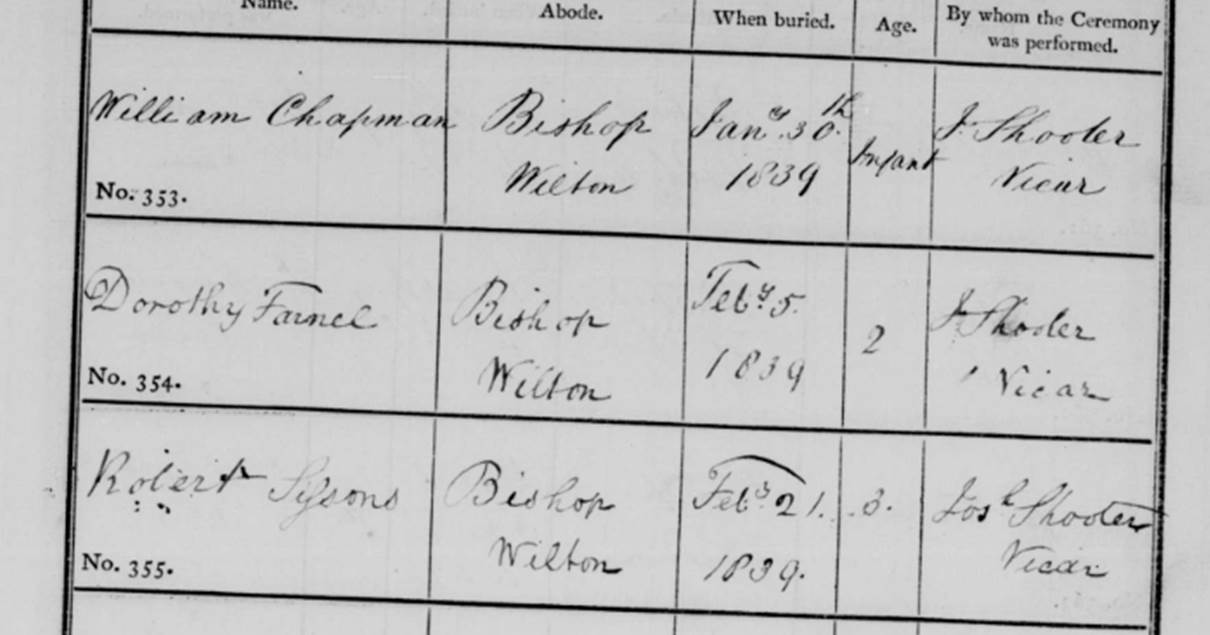 Name. Abode. When buried. Age. By whom the Ceremony
was performed.
William Chapman Bishop Jany. 30th J. Shooter
Wilton 1839 Infant Vicar
No. 353.
Dorothy Farnel Bishop Feby. 5. J. Shooter
Wilton 1839 2 Vicar
No. 354.
Robert Sissons Bishop Feby. 21. 3. Josh Shooter
Wilton 1839. Vicar
No. 355.